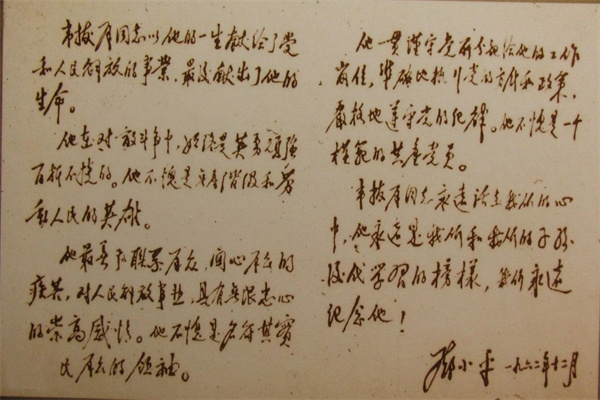 韦拔群同志以他的一生献给了党
和人民解放的事业，最后献出了他的
生命。
他在对敌斗争中，始终是英勇顽强
百折不挠的。他不愧是无产阶级和劳
动人民的英雄。
他最善于联系群众，关心群众的
疾苦，对人民解放事业，具有无限忠心
的崇高感情。他不愧是名符其实
民群众的领袖。
他一贯谨守党所分配给他的工作
岗位，准确地执行党的方针和政策，
严格地遵守党的纪律。他不愧是一个
模范的共产党员。
韦拔群同志永远活在我们的心
中，他永远是我们和我们的子孙
后代学习的榜樣，我们永远
纪念他！
邓小平 一九六二年十二月